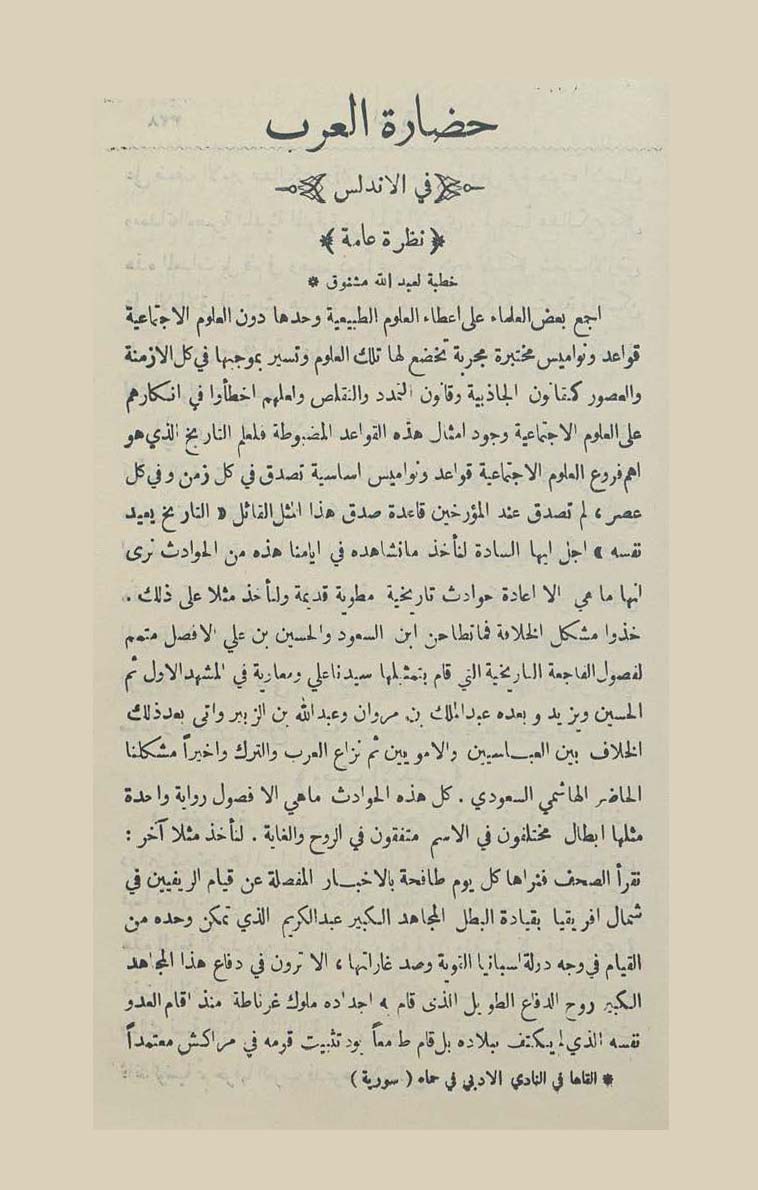 حضارة العرب
في الاندلس
﴿ نظرة عامة ﴾
خطبة لعبد الله مشنوق *
اجمع بعض العلماء على اعطاء العلوم الطبيعية وحدها دون العلوم الاجتماعية
قواعد ونواميس مختبرة مجربة تخضع لها تلك العلوم وتسير بموجبها في كل الازمنة
والعصور كقانون الجاذبية وقانون التمدد والتقلص ولعلهم اخطأوا في انكارهم
على العلوم الاجتماعية وجود امثال هذه القواعد المضبوطة فلعلم التاريخ الذي هو
اهم فروع العلوم الاجتماعية قواعد ونواميس اساسية تصدق في كل زمن وفي كل
عصر ، لم تصدق عند المؤرخين قاعدة صدق هذا المثل القائل « التاريخ يعيد
نفسه » اجل ايها السادة لنأخذ مانشاهده في ايامنا هذه من الحوادث نرى
انها ما هي الا اعادة حوادث تاريخية مطوية قديمة ولنأخذ مثلا على ذلك .
خذوا مشكل الخلافة فماتطاحن ابن السعود والحسين بن علي الافصل متمم
لفصول الفاجعة التاريخية التي قام بتمثيلها سيدنا علي ومعاوية في المشهد الاول ثم
الحسين ويزيد وبعده عبدالملك بن مروان وعبدالله بن الزبير واتى بعدذلك
الخلاف بين العباسيين والامويين ثم نزاع العرب والترك واخيراً مشكلنا
الحاضر الهاشمي السعودي . كل هذه الحوادث ماهي الا فصول رواية واحدة
مثلها ابطال مختلفون في الاسم متفقون في الروح والغاية . لنأخذ مثلا آخر :
نقرأ الصحف فنراها كل يوم طافحة بالاخبار المفصلة عن قيام الريفيين في
شمال افريقيا بقيادة البطل المجاهد الكبير عبدالكريم الذي تمكن وحده من
القيام في وجه دولة اسبانيا القوية وصد غاراتها ، الا ترون في دفاع هذا المجاهد
الكبير روح الدفاع الطويل الذى قام به اجداده ملوك غرناطة منذ اقام العدو
نفسه الذي لم يكتف ببلاده بل قام طمعاً يود تثبيت قومه في مراكش معتمداً
* القاها في النادي الادبي في حماه ( سورية )